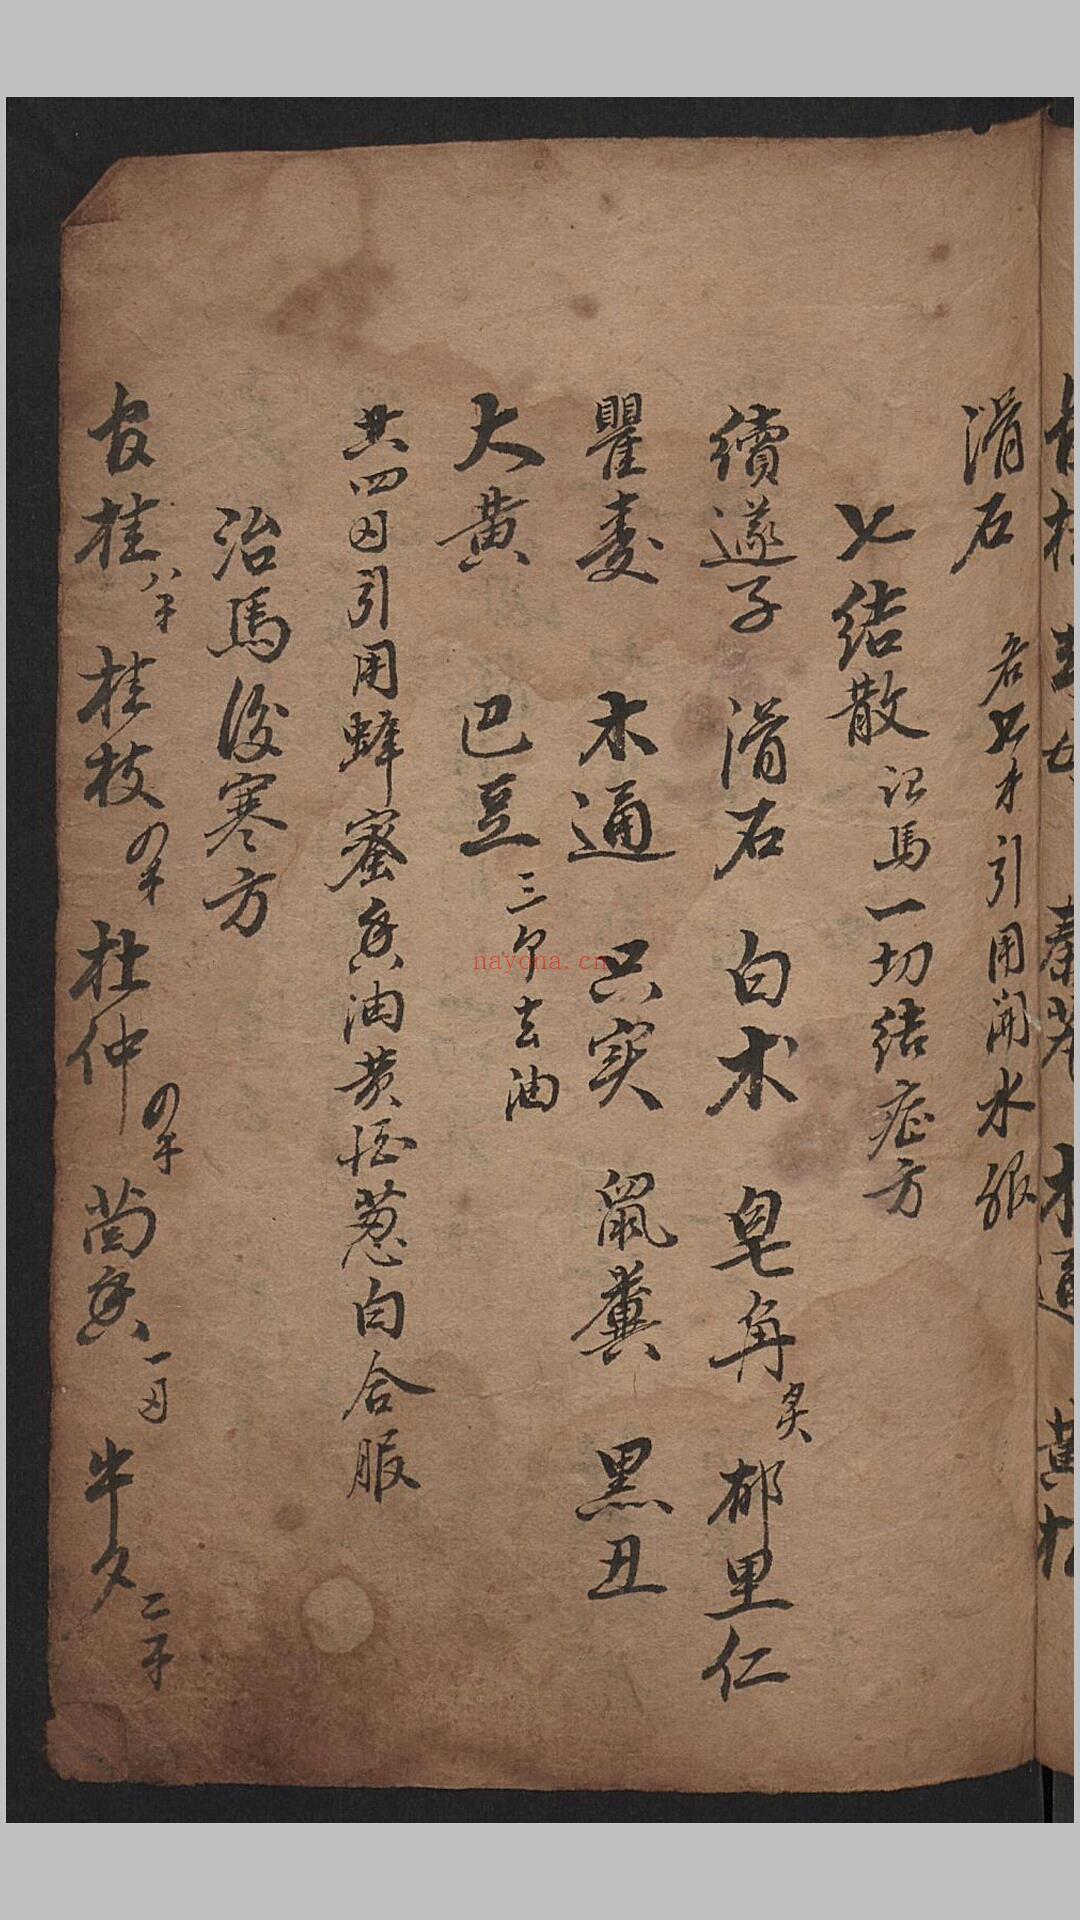 滑石 各七才引用開水服
七結散 治馬一切結症方
續遂子 滑石 白术 皂角炙 郁里仁
瞿麦 木通 只实 鼠糞 黑丑
大黄 巴豆三个去油
共四刄引用蜂蜜香油黄酒葱白合服
治馬後寒方
官桂八千 桂枝四千 杜仲四千 茴香一刄 牛夕二千
nayona.cn